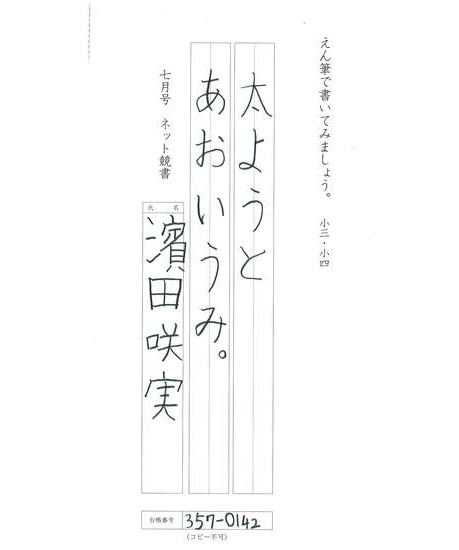 えん筆で書いてみましょう。　小三・小四
太ようと
あおいうみ。
七月号　ネット競書
氏名
濱田咲実
台帳番号 357-0142
(コピー不可)